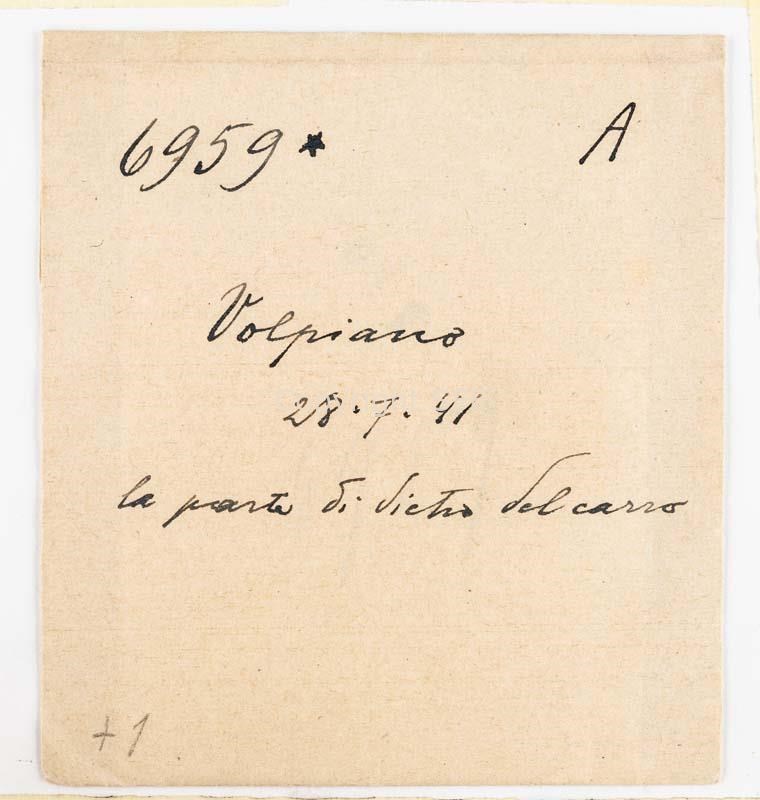 6959* A
Volpiano
28.7.41
la parte di dietro del carro
+1